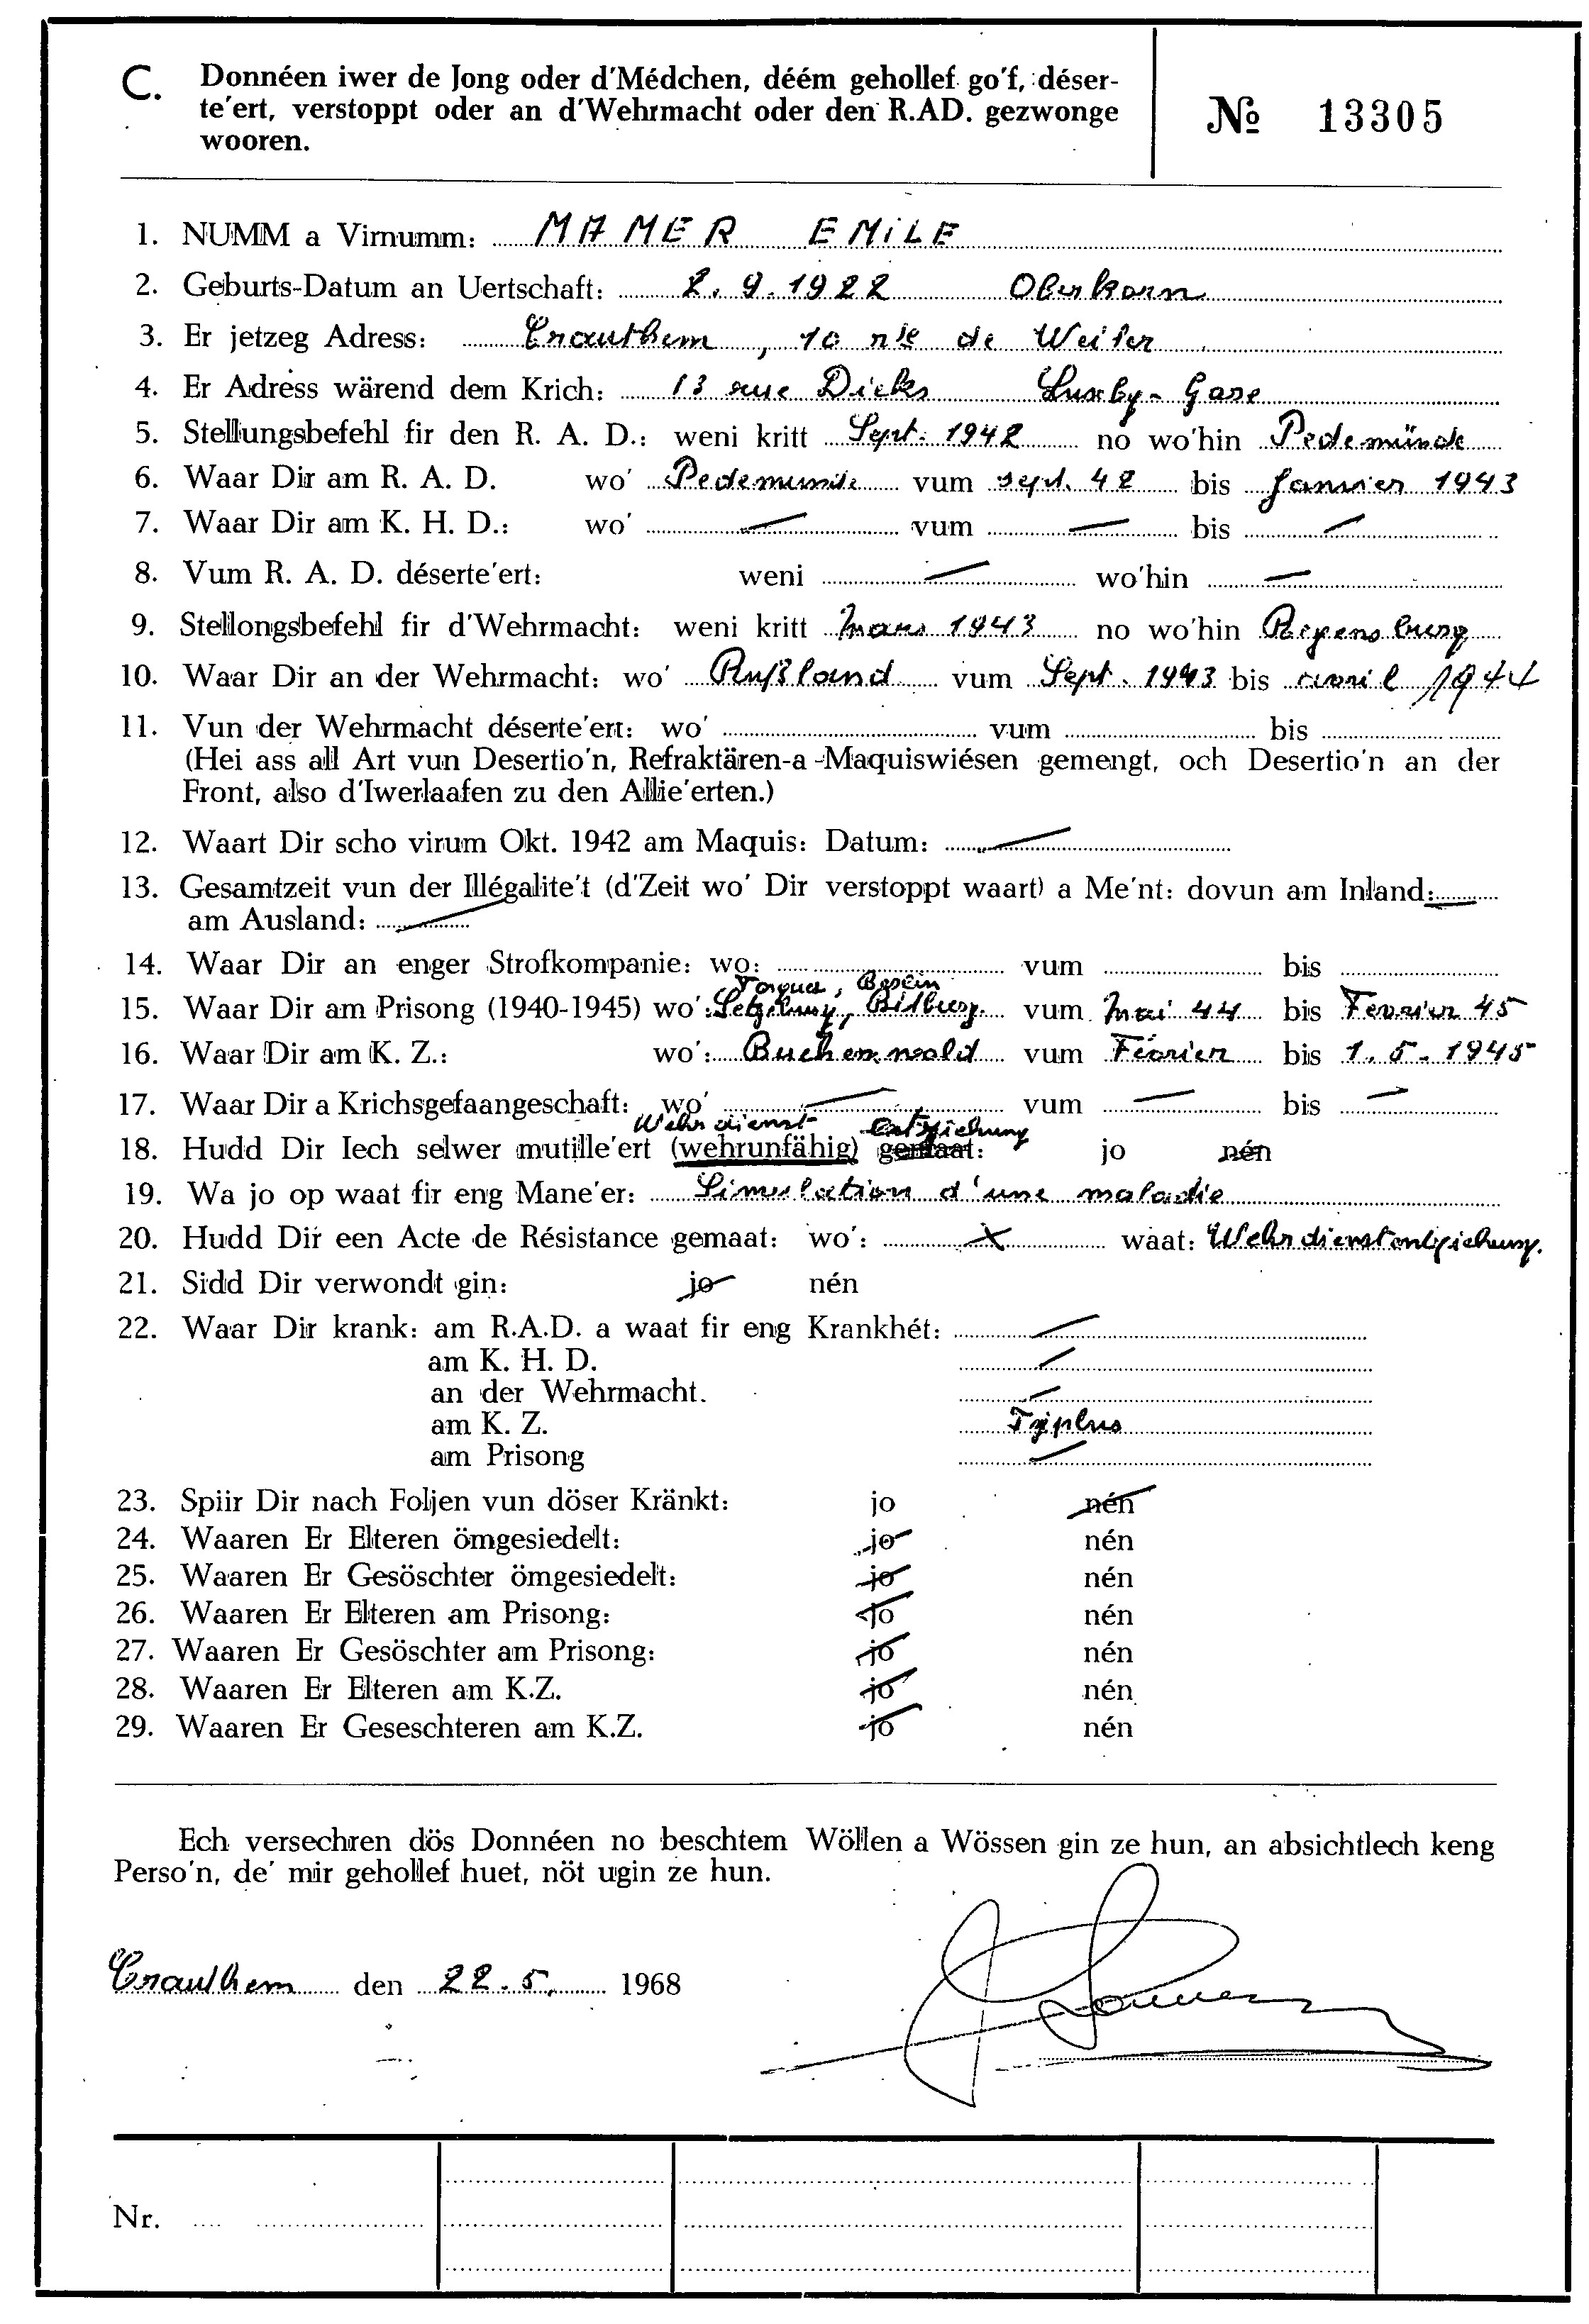 C. Donnéen iwer de Jong oder d'Médchen, déém gehollef go'f, déser-
te'ert, verstoppt oder an d'Wehrmacht oder den R.AD. gezwonge
wooren.
№ 13305
1. NUMM a Virnumm: MAMER EMILE
2. Geburts-Datum an Uertschaft: 2.9.1922 Oberkorn
3. Er jetzeg Adress: Crauthem, 10 rte de Weiler
4. Er Adress wärend dem Krich: 13 rue Dicks Luxbg-Gare
5. Stellungsbefehl fir den R. A. D.: weni kritt Sept. 1942 no wo'hin Pedemünde
6. Waar Dir am R. A. D. wo' Pedemünde vum sept. 42 bis Janvier 1943
7. Waar Dir am K. H. D.: wo' — vum — bis —
8. Vum R. A. D. déserte'ert: weni — wo'hin —
9. Stellongsbefehl fir d'Wehrmacht: weni kritt Mars 1943 no wo'hin Regensburg
10. Waar Dir an der Wehrmacht: wo' Rußland vum Sept. 1943 bis avril 1944
11. Vun der Wehrmacht déserte'ert: wo' vum bis
(Hei ass all Art vun Desertio'n, Refraktären-a-Maquiswiésen gemengt, och Desertio'n an der
Front, also d'Iwerlaafen zu den Allie'erten.)
12. Waart Dir scho virum Okt. 1942 am Maquis: Datum: —
13. Gesamtzeit vun der Illégalite't (d'Zeit wo' Dir verstoppt waart) a Me'nt: dovun am Inland: —
am Ausland: —
14. Waar Dir an enger Strofkompanie: wo: vum bis
15. Waar Dir am Prisong (1940-1945) wo': Bitburg vum Mai 44 bis Fevrier 45
16. Waar Dir am K. Z.: wo': Buchenwald vum Février bis 1.5.1945
17. Waar Dir a Krichsgefaangeschaft: wo' — vum — bis —
Wehrdienst entziehung
18. Hudd Dir Iech selwer mutille'ert (wehrunfähig) gemaat: jo nén
19. Wa jo op waat fir eng Mane'er: Simulation d'une maladie
20. Hudd Dir een Acte de Résistance gemaat: wo': X waat: Wehrdienstentziehung.
21. Sidd Dir verwondt gin: jo nén
22. Waar Dir krank: am R.A.D. a waat fir eng Krankhét: —
am K. H. D. —
an der Wehrmacht. —
am K. Z. Typhus
am Prisong —
23. Spiir Dir nach Foljen vun döser Kränkt: jo nén
24. Waaren Er Elteren ömgesiedelt: jo nén
25. Waaren Er Gesöschter ömgesiedelt: jo nén
26. Waaren Er Elteren am Prisong: jo nén
27. Waaren Er Gesöschter am Prisong: jo nén
28. Waaren Er Elteren am K.Z. jo nén
29. Waaren Er Geseschteren am K.Z. jo nén
Ech versechren dös Donnéen no beschtem Wöllen a Wössen gin ze hun, an absichtlech keng
Perso'n, de' mir gehollef huet, nöt ugin ze hun.
Crauthem den 22.5. 1968
Nr.